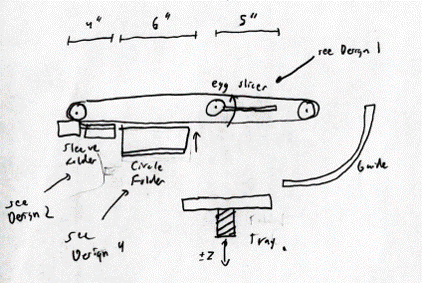 4" 6" 5"
see Design 1
egg slicer
Sleeve
Folder
Circle
Folder
Guide
see
Design 2
see
Design 4
Tray
±z